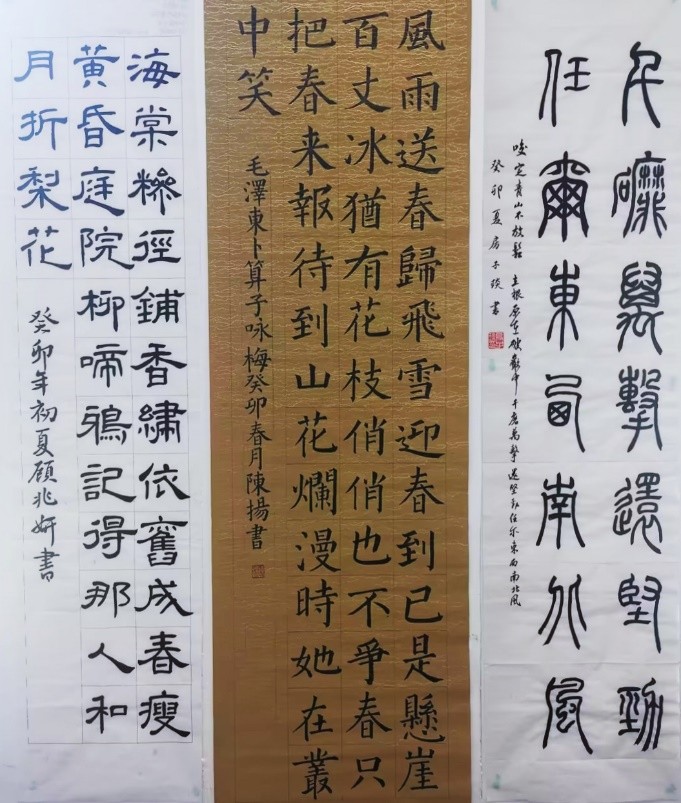 千磨萬擊還堅勁
任爾東西南北風
咬定青山不放鬆 立根原在破巖中 千磨萬擊還堅勁任尔東西南北風
癸卯夏房子琰書
風雨送春歸飛雪迎春到已是懸崖
百丈冰猶有花枝俏俏也不爭春只
把春来報待到山花爛漫時她在叢
中笑
毛澤東卜算子咏梅癸卯春月陳揚書
海棠糝徑鋪香繡依舊成春瘦
黄昏庭院柳啼鴉記得那人和
月折梨花
癸卯年初夏顾兆妍書